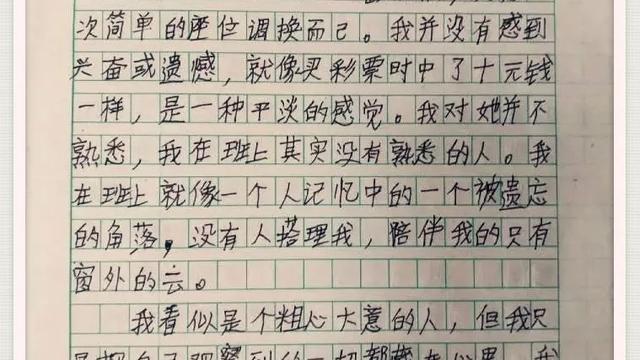 次简单的座位调换而已。我并没有感到
兴奋或遗憾，就像买彩票时中了十元钱
一样，是一种平淡的感觉。我对她并不
熟悉，我在班上其实没有熟悉的人。我
在班上就像一个人记忆中的一个被遗忘
的角落，没有人搭理我，陪伴我的只有
窗外的云。
我看似是个粗心大意的人，但我只